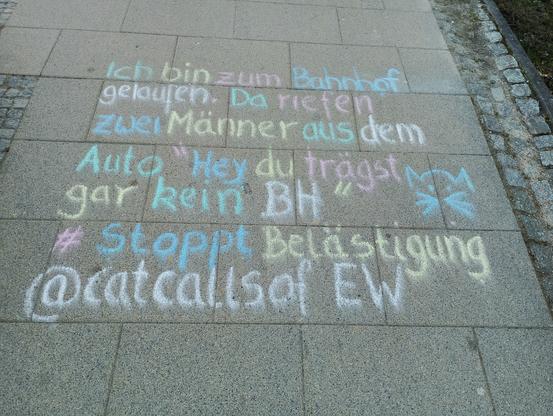 Ich bin zum Bahnhof
gelaufen. Da riefen
zwei Männer aus dem
Auto "Hey du trägst
gar kein BH"
# Stoppt Belästigung
@catcallsof EW